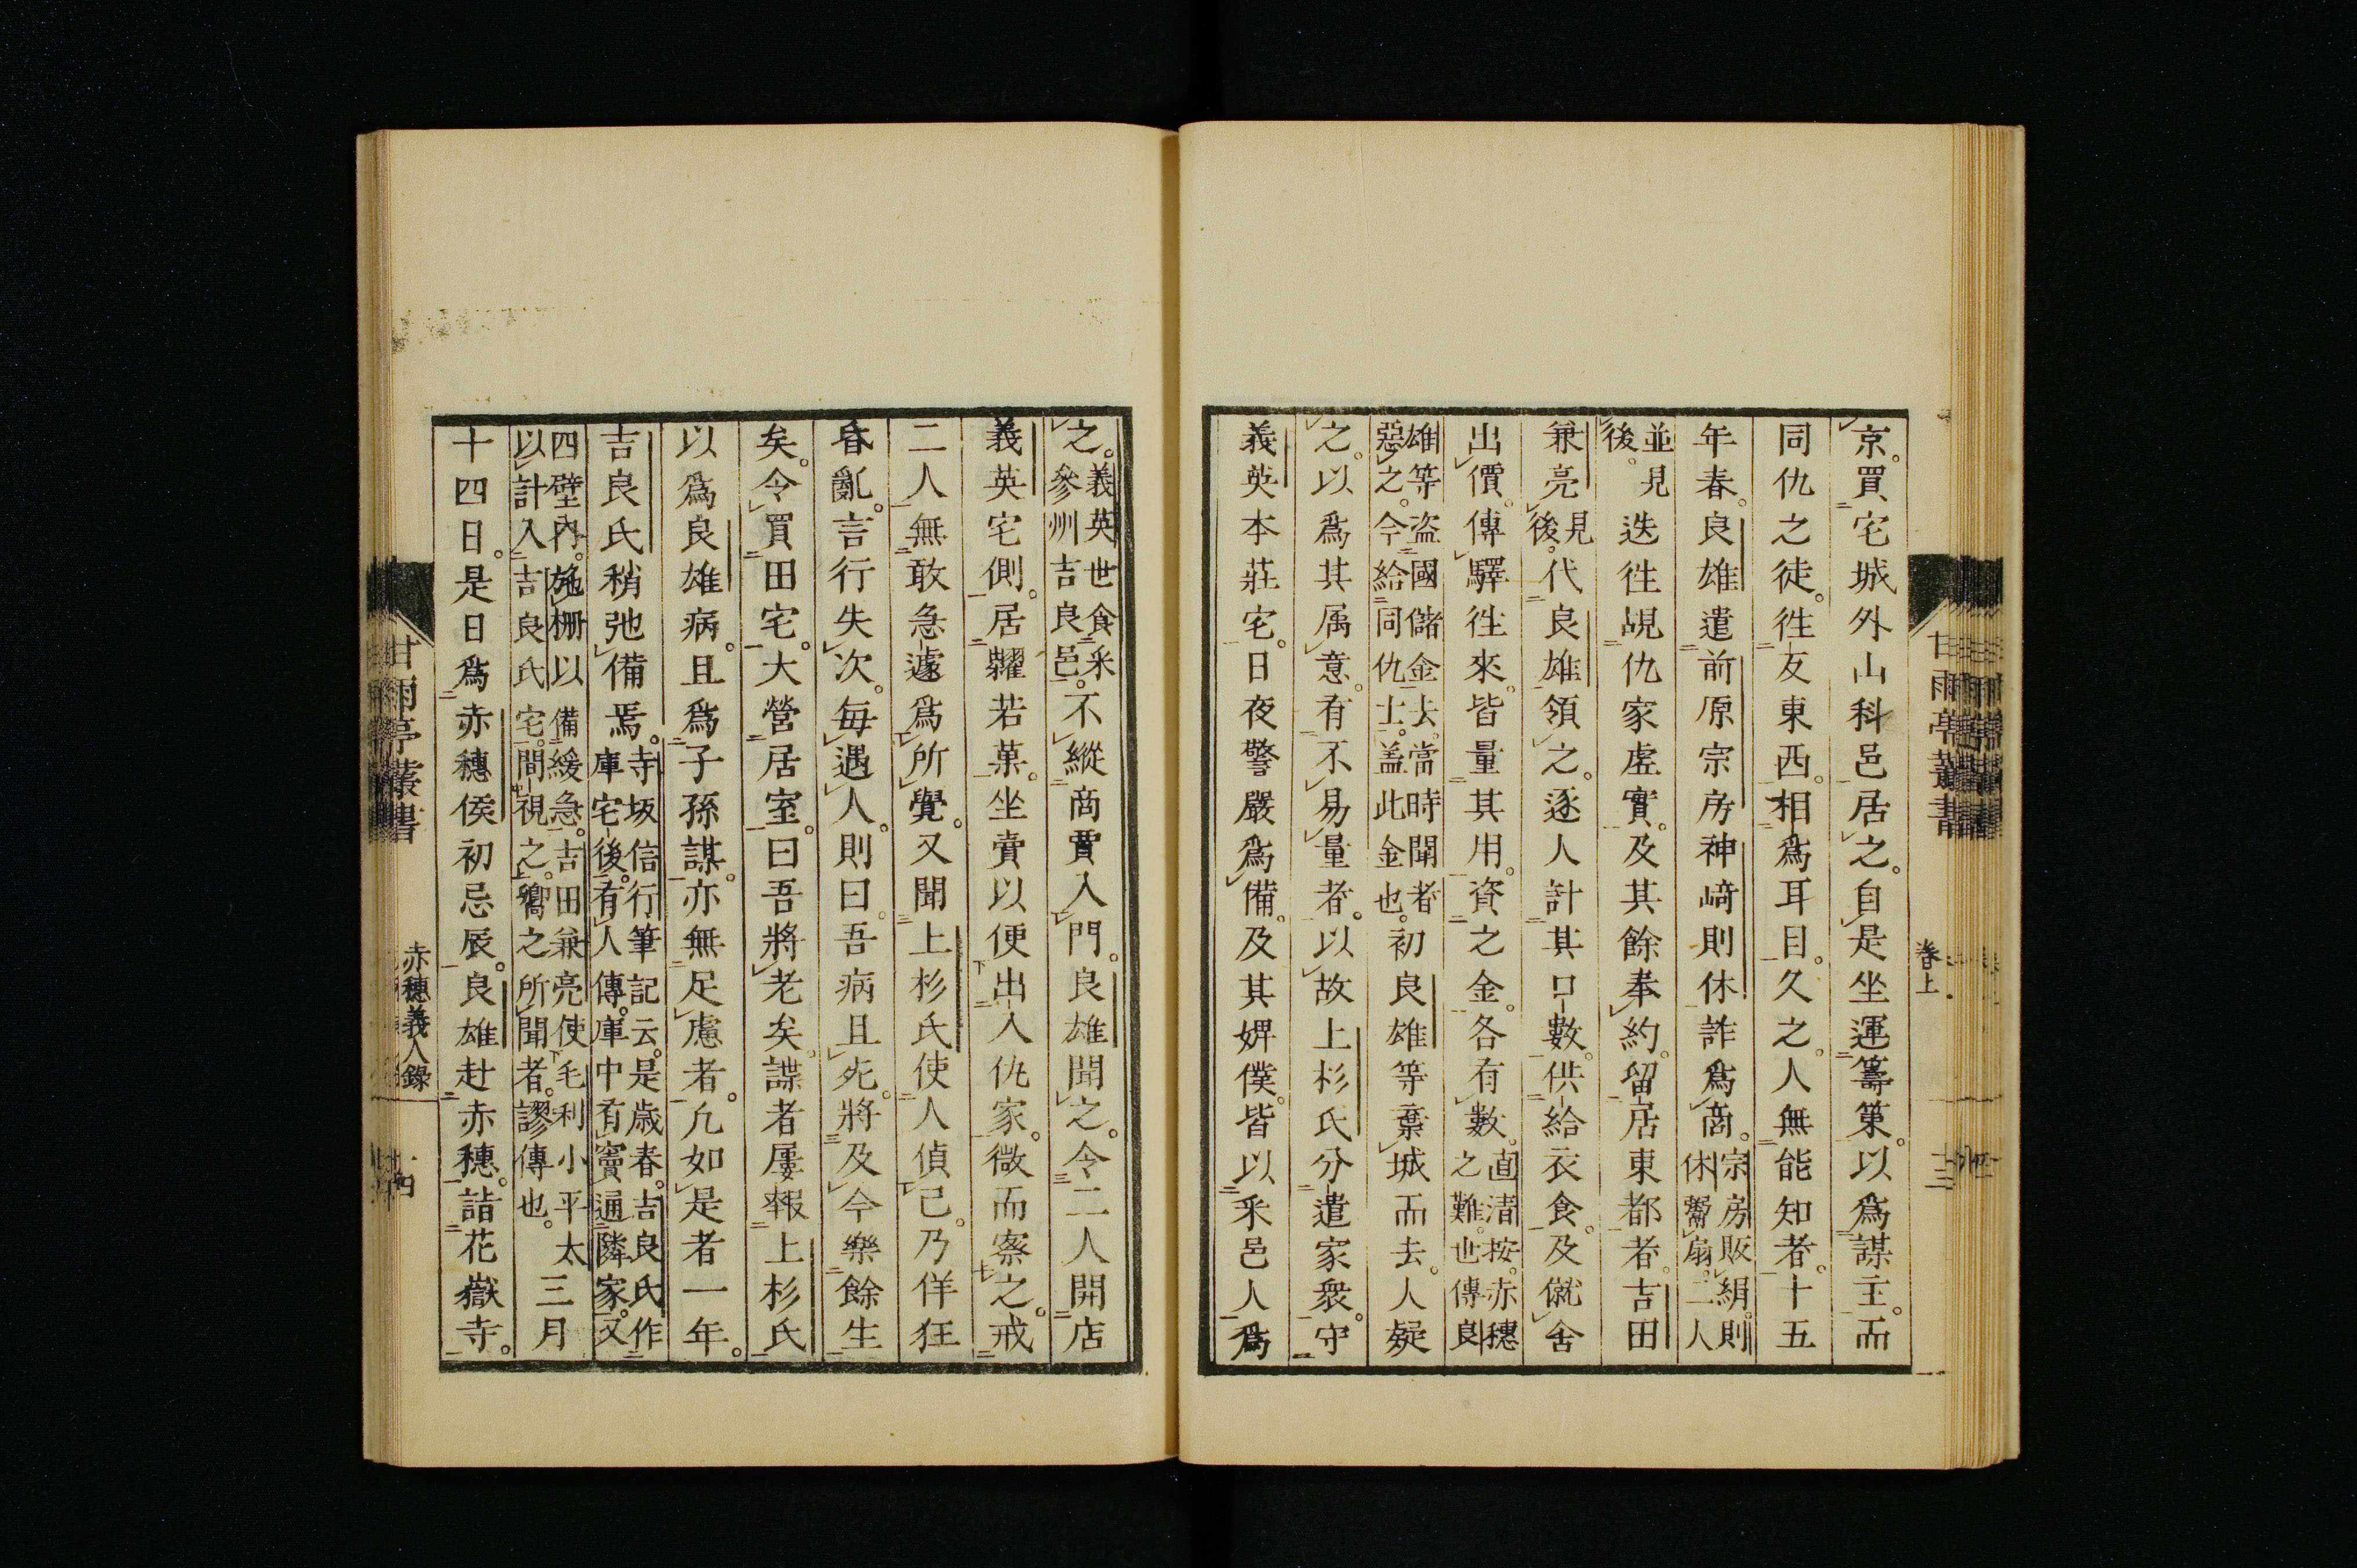 京。買宅城外山科邑居之。自是坐運籌策。以爲謀主。而
同仇之徒。徃友東西。相爲耳目。久之。人無能知者。十五
年春。良雄遣前原宗房神﨑則休。詐爲商。宗房販絹。則休鬻扇。二人
並見後。迭徃覘仇家虛實。及其餘奉約。留居東都者。吉田
兼亮見後。代良雄領之。逐人計其口數。供給衣食。及僦舍
出價。傳驛徃來。皆量其用。資之金。各有數。直清按。赤穗之難也。傳良
雄等盜國儲金去。當時聞者惡之。今給同仇士。盖此金也。初良雄等棄城而去。人疑
之。以爲其属意。有不易量者。以故上杉氏分遣家衆。守
義英本莊宅。日夜警嚴爲備。及其婢僕。皆以釆邑人爲
卷上
十三
之。義英世食釆參州吉良邑。不縱商賈入門。良雄聞之。令二人開店
義英宅側。居糶若菓。坐賣以便出入仇家。微而察之。戒
二人無敢急遽爲所覺。又聞上杉氏使人偵己。乃佯狂
昏亂。言行失次。每遇人。則曰。吾病且死。將及今樂餘生
矣。令買田宅。大營居室。曰吾將老矣。諜者屢報上杉氏
以爲良雄病。且爲子孫謀。亦無足慮者。凢如是者一年。
吉良氏稍弛備焉。寺坂信行筆記云。是歲春。吉良氏作庫宅後。有人傳。庫中有竇通隣家。又
四壁內。施柵以備緩急。吉田兼亮使毛利小平太以計入吉良氏宅。間視之。嚮之所聞者。謬傳也。三月
十四日。是日爲赤穗侯初忌辰。良雄赴赤穗。詣花嶽寺。
甘雨亭叢書
赤穗義人錄
十四